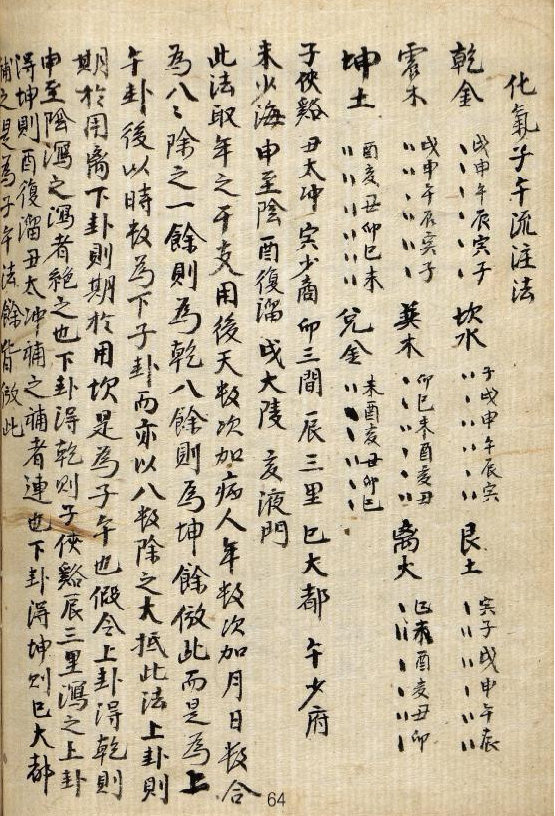 化氣子午流注法
乾金 戌申午辰寅子 坎水 子戌申午辰寅 艮土 寅子戌申午辰
震木 戌申午辰寅子 巽木 卯巳未酉亥丑 离火 巳未酉亥丑卯
坤土 酉亥丑卯巳未 兌金 未酉亥丑卯巳
子俠谿 丑太冲 寅少商 卯三間 辰三里 巳大都 午少府
未少海 申至陰 酉復溜 戌大陵 亥液門
此法取年之干支用後天数次加病人年数次加月日数合
為八〻除之一餘則為乾八餘則為坤餘倣此而是為上
午卦後以時数為下子卦而亦以八数除之大抵此法上卦則
期於用离下卦則期於用坎是為子午也假令上卦得乾則
申至陰瀉之瀉者絶之也下卦得乾則子俠谿辰三里瀉之上卦
得坤則酉復溜丑太冲補之補者連也下卦得坤則巳大都
補之是為子午法餘皆倣此
64